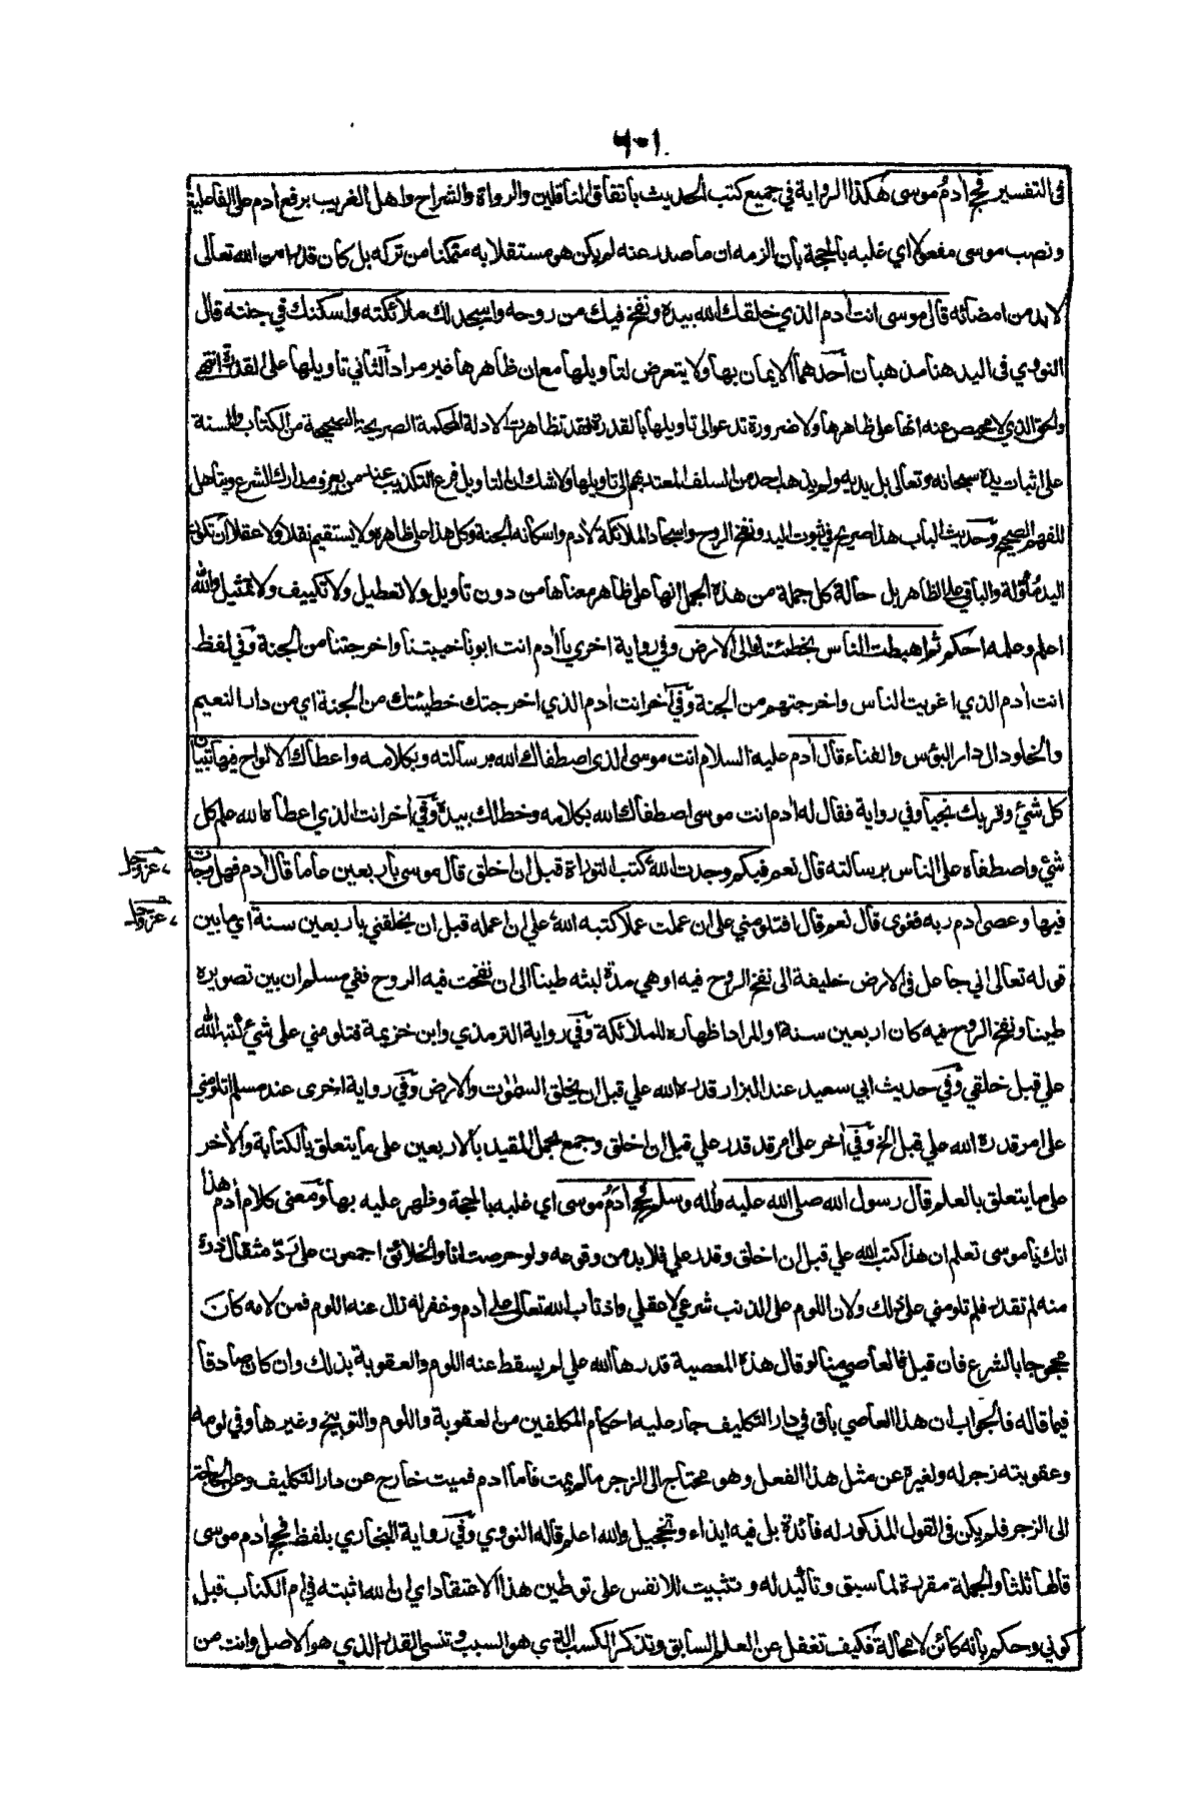 ٦٠١
فى التفسير فحج أدمُ موسى هكذا الرواية في جميع كتب الحديث باتفاق الناقلين والرواة والشراح واهل الغريب برفع أدم على الفاعلية
ونصب موسى مفعولا اي غلبه بالحجة بأن الزمه ان ما صدر عنه لم يكن هو مستقلا به متمكنا من تركه بل كان قدرا من الله تعالى
لا بد من امضائه قال موسى انت أدم الذي خلقك الله بيده ونفخ فيك من روحه واسجد لك ملائكته واسكنك في جنته قال
النووي فى اليد هنا مذهبان أحدهما الايمان بها ولا يتعرض لتأويلها مع ان ظاهرها غير مراد الثاني تأويلها على القدرة انتهى
والحق الذي لا محيص عنه انها على ظاهرها ولا ضرورة تدعو الى تأويلها بالقدرة فقد تظاهرت الادلة المحكمة الصريحة الصحيحة من الكتاب والسنة
على اثبات يده سبحانه وتعالى بل يديه ولم يذهب احد من السلف المعتد بهم الى تأويلها ولا شك ان التاويل فرع التكذيب عند من يعرف مدارك الشرع ويتأهل
للفهم الصحيح وحديث الباب هذا صريح في ثبوت اليد ونفخ الروح واسجاد الملائكة لأدم واسكانه الجنة وكل هذا على ظاهره ولا يستقيم نقلا ولا عقلا أن تكون
اليد مُأولة والباقي على الظاهر بل حالة كل جملة من هذه الجمل انها على ظاهر معناها من دون تأويل ولا تعطيل ولا تكييف ولا تمثيل والله
اعلم وعلمه احكم ثم اهبطت الناس بخطئتك الى الارض وفي رواية اخرى يا أدم انت ابونا خيبتنا واخرجتنا من الجنة وفي لفظ
انت أدم الذي اغويت الناس واخرجتهم من الجنة وفي أخر انت أدم الذي اخرجتك خطيئتك من الجنة اي من دار النعيم
والخلود الى دار البؤس والفناء قال أدم عليه السلام انت موسى الذي اصطفاك الله برسالته وبكلامه واعطاك الالواح فيها تبيان
كل شيئ وقربك نجيا وفي رواية فقال له أدم انت موسى اصطفاك الله بكلامه وخط لك بيده وفي أخر انت الذي اعطاه الله علم كل
شيئ واصطفاه على الناس برسالته قال نعم فبكم وجدت الله كتب التوراة قبل ان اخلق قال موسى بأربعين عاما قال أدم فهل وجدت
عزوجل
فيها وعصى أدم ربه فغوى قال نعم قال افتلومني على ان عملت عملا كتبه الله علي ان اعمله قبل ان يخلقني باربعين سنة اي ما بين
عزوجل
قوله تعالى اني جاعل فى الارض خليفة الى نفخ الروح فيه او هي مدة لبثه طينا الى ان نفخت فيه الروح ففي مسلم ان بين تصويره
طينا ونفخ الروح فيه كان اربعين سنة او المراد اظهاره للملائكة وفي رواية الترمذي وابن خزيمة فتلومني على شيئ كتبه الله
علي قبل خلقي وفي حديث ابي سعيد عند البزار قدره الله علي قبل ان يخلق السموات والارض وفي رواية اخرى عند مسلم اتلومني
على امر قدره الله علي قبل الخ وفي أخر على امر قد قدر علي قبل ان اخلق وجمع بحمل المقيد بالاربعين على ما يتعلق بالكتابة والأخر
على ما يتعلق بالعلم قال رسول الله صلى الله عليه وأله وسلم فحج أدمُ موسى اي غلبه بالحجة وظهر عليه بها ومعنى كلام أدم هذا
انك يا موسى تعلم ان هذا كتب الله علي قبل ان اخلق وقدر علي فلا بد من وقوعه ولو حرصت انا والخلائق اجمعون على ردّ مثقال ذرة
منه لم نقدر فلم تلومني على ذلك ولان اللوم على الذنب شرعي لا عقلي واذ تاب الله تعالى على أدم وغفر له زال عنه اللوم فمن لامه كان
محجوجا بالشرع فان قيل فالعاصي منا لو قال هذه المعصية قدرها الله علي لم يسقط عنه اللوم والعقوبة بذلك وان كان صادقا
فيما قاله فالجواب ان هذا العاصي باق في دار التكليف جار عليه احكام المكلفين من العقوبة واللوم والتوبيخ وغيرها وفي لومه
وعقوبته زجر له ولغيره عن مثل هذا الفعل وهو محتاج الى الزجر ما لم يمت فأما أدم فميت خارج عن دار التكليف وعن الحاجة
الى الزجر فلم يكن فى القول المذكور له فائدة بل فيه ايذاء وتخجيل والله اعلم قاله النووي وفي رواية البخاري بلفظ فحج أدم موسى
قالها ثلثا والجملة مقررة لما سبق وتأكيد له وتثبيت للانفس على توطين هذا الاعتقاد اي ان الله اثبته في ام الكتاب قبل
كوني وحكم بأنه كائن لا محالة فكيف تغفل عن العلم السابق وتذكر الكسب الذي هو السبب وتنسى القدر الذي هو الاصل وانت من